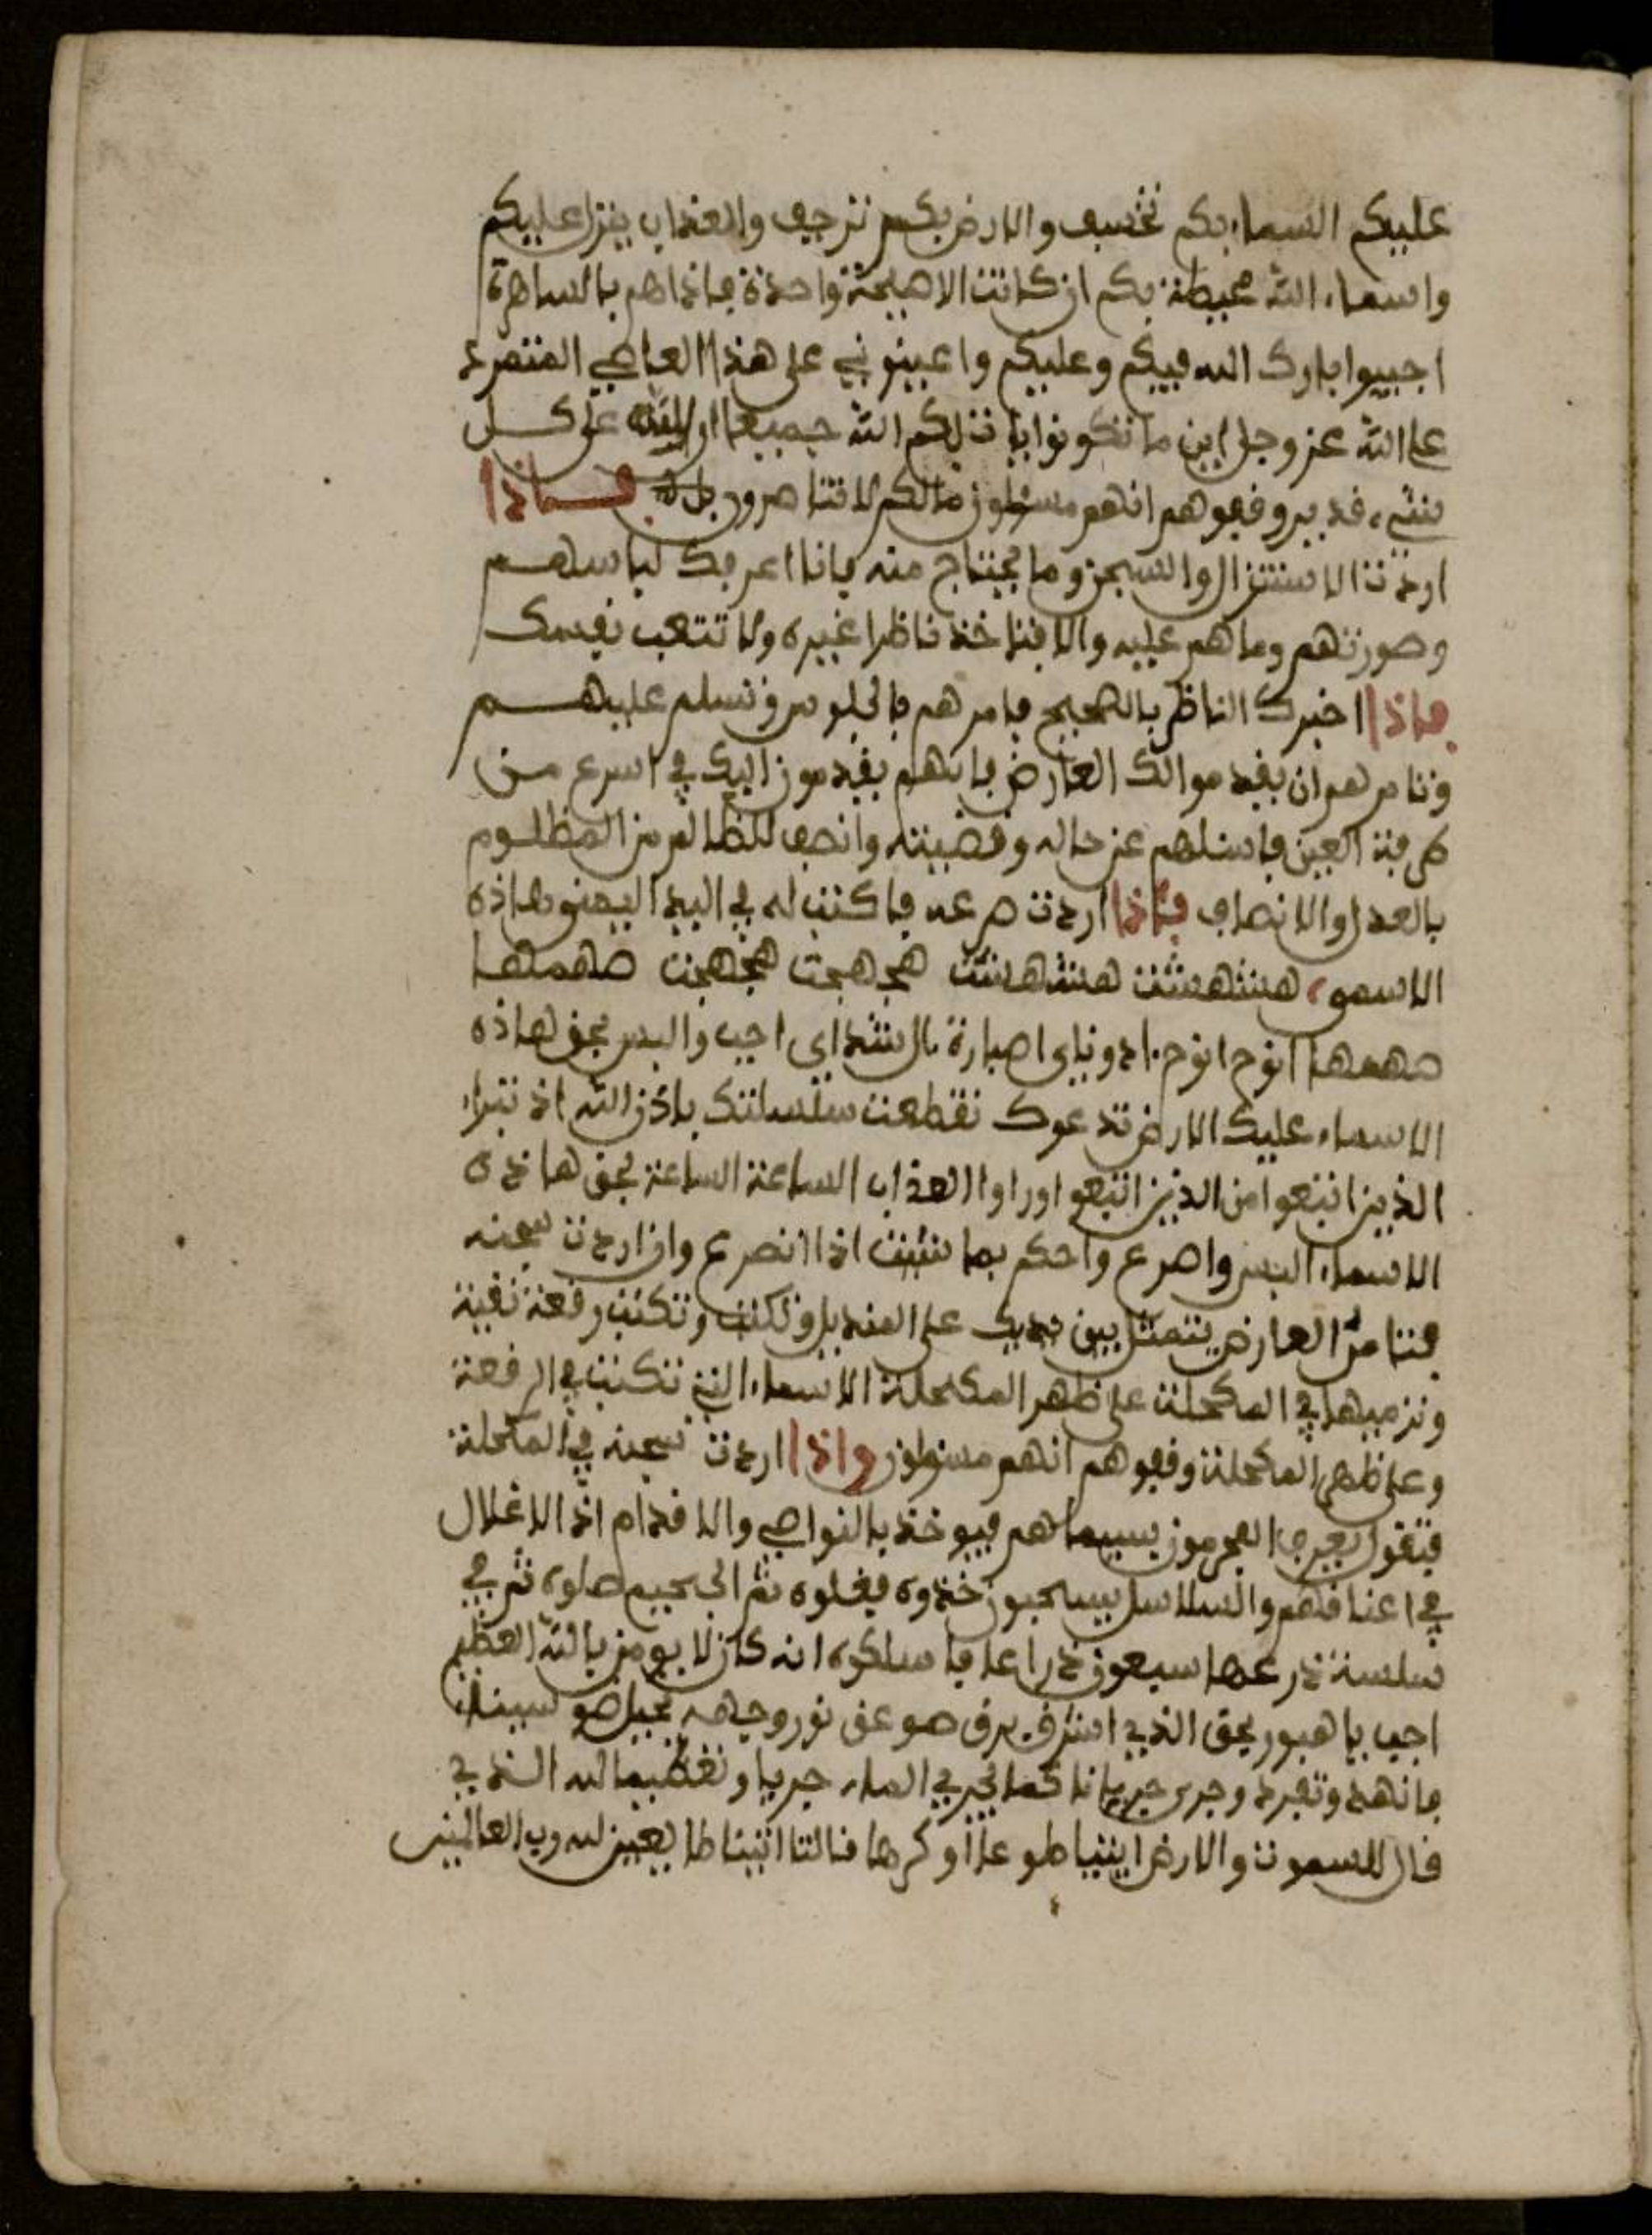 عليكم السماء بكم تخسف والارض بكم ترجف والعذاب ينزل عليكم
واسماء الله محيطة بكم ان كانت الا صيحة واحدة فاذا هم بالساهرة
اجيبوا بارك الله فيكم وعليكم واعينوني على هذا العاصي المتمرد
على الله عز وجل اين ما تكونوا يات بكم الله جميعا ان الله على كل
شيء قدير وقفوهم انهم مسئولون مالكم لا تناصرون بل فاذا
اردت الاستنزال والسجن وما يحتاج منه فانا اعرفك لباسهم
وصورتهم وما هم عليه والا فتاخذ ناظرا غيره ولا تتعب نفسك
فاذا اخبرك الناظر بالصحيح فامرهم بالجلوس وتسلم عليهم
وتامرهم ان يقدموا لك العارض فانهم يقدمون اليك في اسرع من
طرفة العين فاسئلهم عن حاله وقضيته وانصف للظالم من المظلوم
بالعدل والانصاف فاذا اردت صرعه فاكتب له في اليد اليمنى هاذه
الاسمو هشهشت هشهشت هجهجت هجهجت صهمها
صهمها انوخ انوخ ادوناي اصبارة ال شداي اجب والبس بحق هاذه
الاسماء عليك الارض تدعوك تقطعت سلسلتك باذن الله اذ تبرا
الذين اتبعوا من الذين اتبعوا وراوا العذاب الساعة الساعة بحق هاذه
الاسماء البس واصرع واحكم بما شئت اذا انصرع وان اردت سجنه
فتامر العارض يتمثل بين يديك على المنديل وتكتب رقعة نقية
وترميها في المكحلة على ظهر المكحلة الاسماء التي تكتب في الرقعة
وعلى ظهر المكحلة وقفوهم انهم مسئولون واذا اردت سجنه في المكحلة
فتقول يعرف المجرمون بسيماهم فيوخذ بالنواصي والاقدام اذ الاغلال
في اعناقهم والسلاسل يسحبون خذوه فغلوه ثم الجحيم صلوه ثم في
سلسة ذرعها سبعون ذراعا فاسلكوه انه كان لا يومن بالله العظيم
اجب يا هبور بحق الذي اشرق برق صوعق نور وجهه بجبل طو سيناء
فانهد وتفرد وجرى جريانا كما يجري الماء جريا وتغظيما لله الذي
قال للسموت والارض ايتيا طوعا او كرها قالتا اتينا طايعين لله رب العالمين